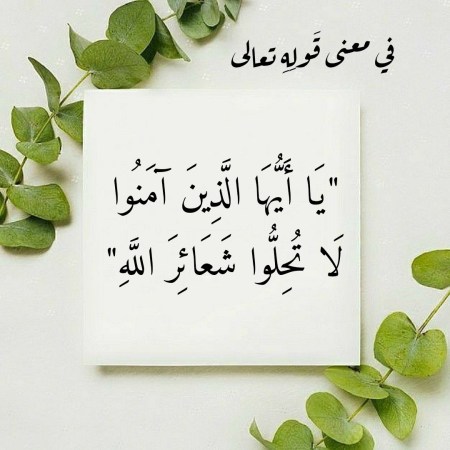 في معنى قَولِه تعالى
"يَا أَيُّهَا الَّذِينَ آمَنُوا
لَا تُحِلُّوا شَعَائِرَ اللَّهِ"